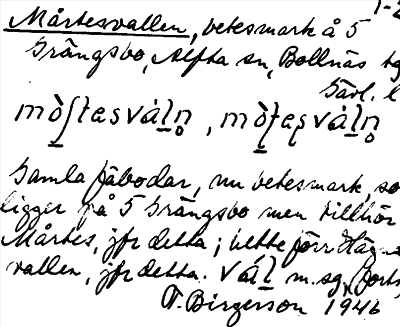 1-2
Mårtesvallen, betesmark å 5
Grängsbo, Alfta sn, Bollnäs
Gävl. l
Gamla fäbodar, nu betesmark, so
ligger på 5 Grängsbo men tillhör
Mårtes, jfr detta; hette förr Häg
vallen, jfr detta. m. sg.
T. Birgerson 1946